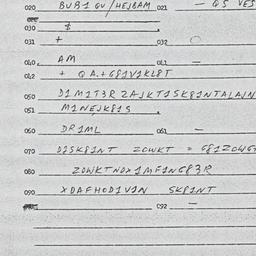 020 BUB1 GV / HEJBAM 021 — Q5 VES
030 $
031 + 032 O
040. AM 041 —
042 + QA.+G81V1KL8T
050 D1M1T3R ZAJKT1SK81NTALAJN
051 M1NEJK81S
060 DR1ML 061 —
070 D1SK81NT ZCWKT = G81ZCWG
080 ZDWKTNDX1MF1NG83R
090 XDAFHOD1V1N SK81NT
C92 —